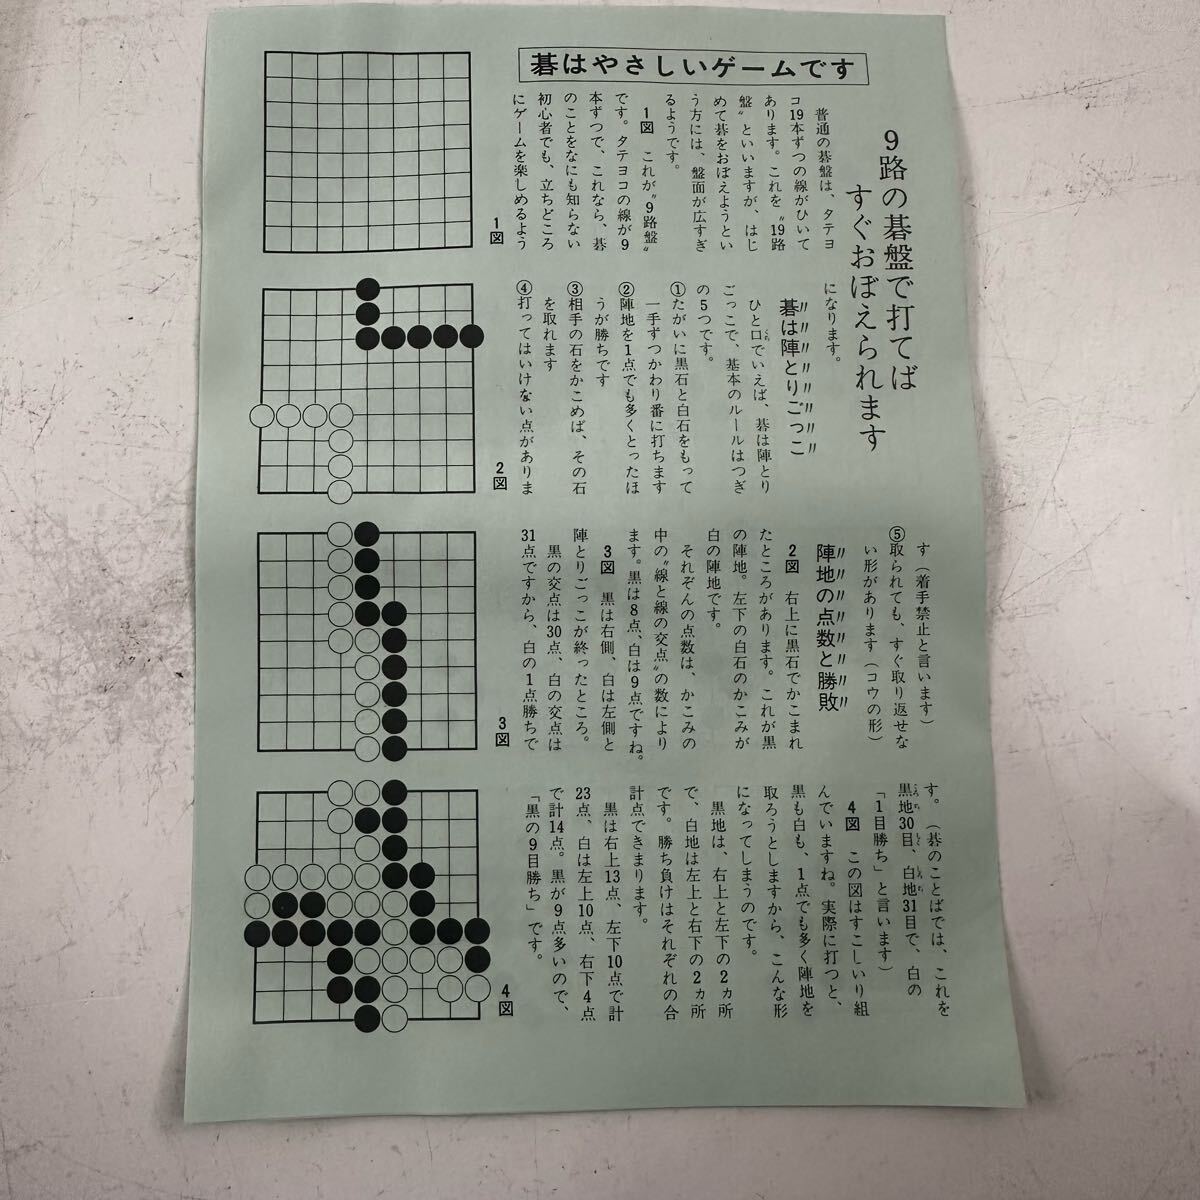 碁はやさしいゲームです
9路の碁盤で打てば
すぐおぼえられます
普通の碁盤は、タテヨ
コ19本ずつの線がひいて
あります。これを〝19路
盤〟といいますが、はじ
めて碁をおぼえようとい
う方には、盤面が広すぎ
るようです。
1図 これが〝9路盤〟
です。タテヨコの線が9
本ずつで、これなら、碁
のことをなにも知らない
初心者でも、立ちどころ
にゲームを楽しめるよう
1図
になります。
碁は陣とりごっこ
ひと口でいえば、碁は陣とり
ごっこで、基本のルールはつぎ
の5つです。
①たがいに黒石と白石をもって
一手ずつかわり番に打ちます
②陣地を1点でも多くとったほ
うが勝ちです
③相手の石をかこめば、その石
を取れます
④打ってはいけない点がありま
2図
す（着手禁止と言います）
⑤取られても、すぐ取り返せな
い形があります（コウの形）
陣地の点数と勝敗
2図 右上に黒石でかこまれ
たところがあります。これが黒
の陣地。左下の白石のかこみが
白の陣地です。
それぞんの点数は、かこみの
中の〝線と線の交点〟の数により
ます。黒は8点、白は9点ですね。
3図 黒は右側、白は左側と
陣とりごっこが終ったところ。
黒の交点は30点、白の交点は
31点ですから、白の1点勝ちで
3図
す。（碁のことばでは、これを
黒地30目、白地31目で、白の
「1目勝ち」と言います）
4図 この図はすこしいり組
んでいますね。実際に打つと、
黒も白も、1点でも多く陣地を
取ろうとしますから、こんな形
になってしまうのです。
黒地は、右上と左下の2ヵ所
で、白地は左上と右下の2ヵ所
です。勝ち負けはそれぞれの合
計点できまります。
黒は右上13点、左下10点で計
23点、白は左上10点、右下4点
で計14点。黒が9点多いので、
「黒の9目勝ち」です。
4図